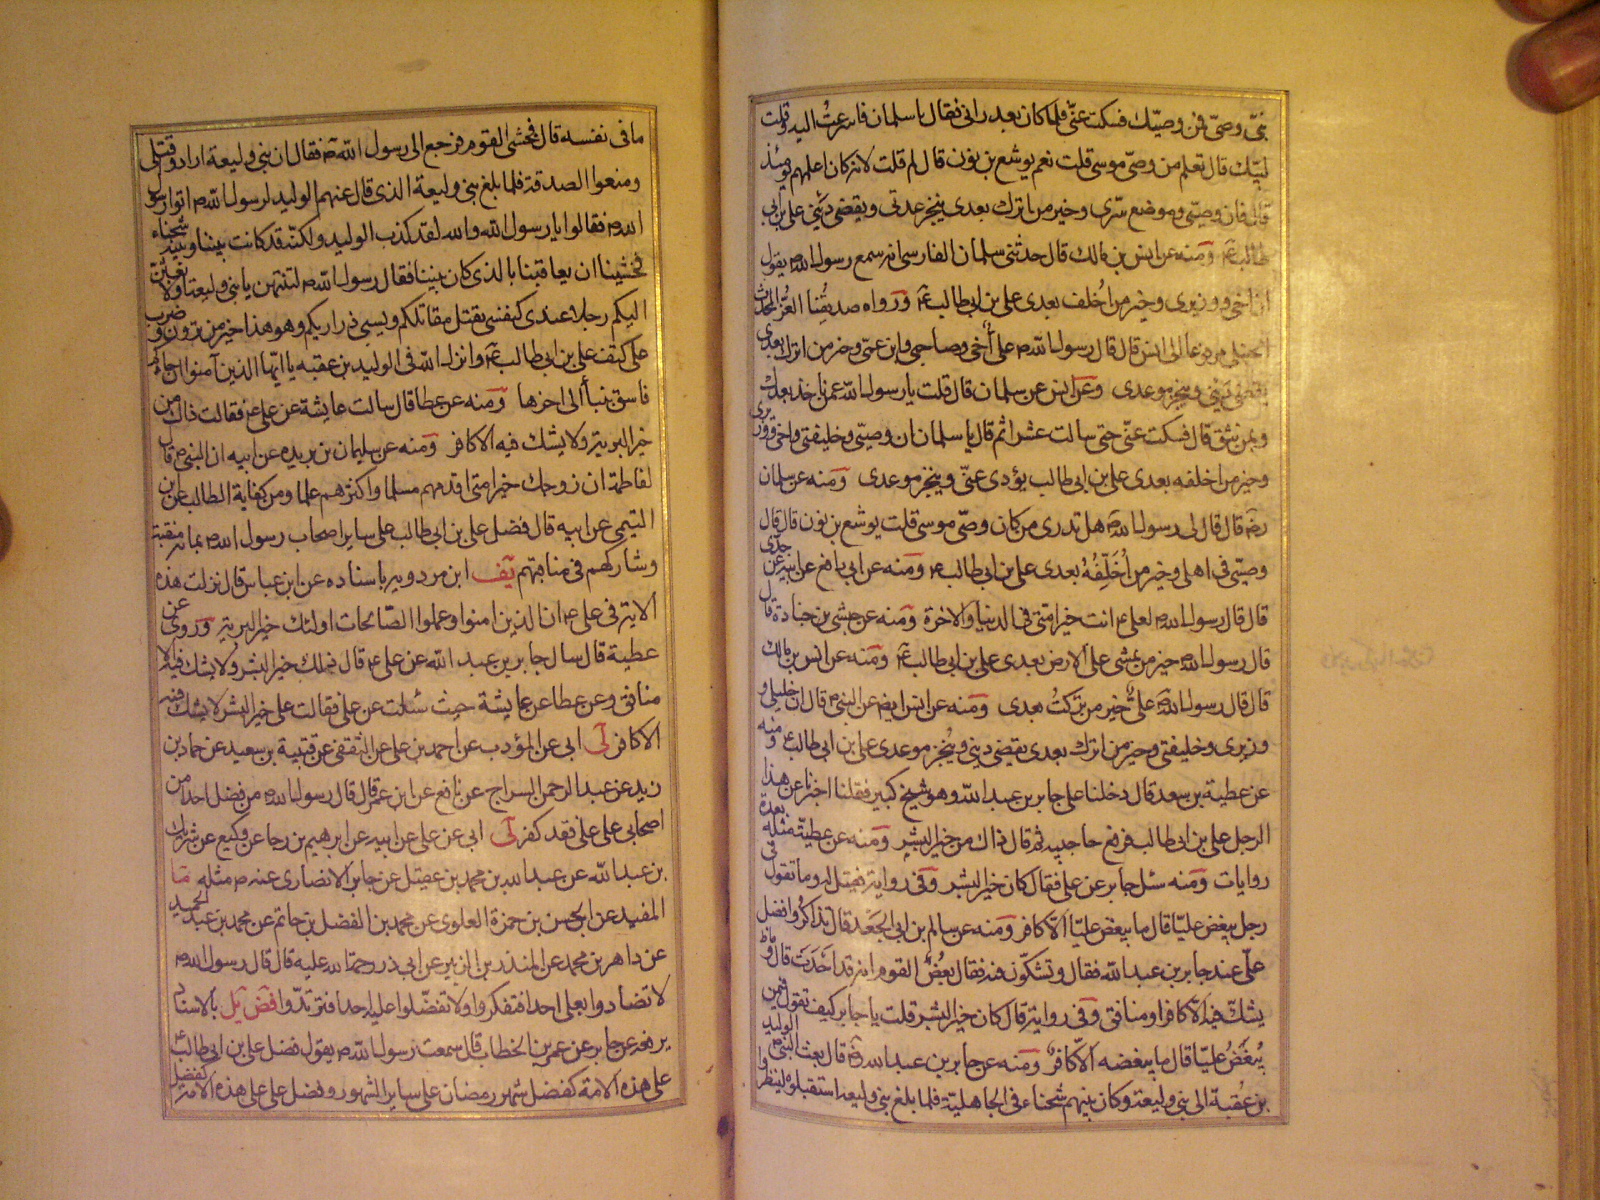 نبىّ وصىّ فمن وصيّك فسكت عنّى فلما كان بعد رانى فقال يا سلمان فاسرعتُ اليه وقلت
لبيّك قال تعلم من وصىّ موسى قلت نعم يوشع بن نون قال لم قلت لانه كان اعلمهم يومئذ
قال فان وصيّى وموضع سرّى وخير من اترك بعدى ينجز عدتى ويقضى دَينى على بن ابى
طالب ع ومنه عن انس بن مالك قال حدثنى سلمان الفارسى انه سمع رسول الله ص يقول
ان اخى ووزيرى وخير من اُخلف بعدى على بن ابى طالب ع ورواه صديقُنا العزّ المحدّث
الحنبلى مرفوعا الى انس قال قال رسول الله ص على أخى وصاحبى وابن عمّى وخير من اترك بعدى
يقضى دَينى وينجز موعدى وعن انس عن سلمان قال قلت يا رسول الله عمن ناخذ بعدك
وبمن نثق قال فسكت عنّى حتى سالت عشرا ثم قال يا سلمان ان وصيّى وخليفتى واخى ووزيرى
وخير من اخلفه بعدى على بن ابى طالب يؤدى عنّى وينجز موعدى ومنه عن سلمان
رضه قال قال لى رسول الله ص هل تدرى من كان وصىّ موسى قلت يوشع بن نون قال قال
وصيّى فى اهلى وخير من اُخَلِّفُهُ بعدى على بن ابى طالب ع ومنه عن ابى رافع عن ابيه عن جدّى
قال قال رسول الله ص لعلى ع انت خير امّتى فى الدنيا والاخرة ومنه عن حبشى بن جنادة قال
قال رسول الله ص خير من يمشى على الارض بعدى على بن ابى طالب ع ومنه عن انس بن مالك
قال قال رسول الله ص علىٌّ خير من تركتُ بعدى ومنه عن انس ايضا عن النبى ص قال ان خليلى و
وزيرى وخليفتى وخير من اترك بعدى يقضى دينى ويُنجز موعدى على بن ابى طالب ع ومنه
عن عطية بن سعد قال دخلنا على جابر بن عبد الله وهو شيخ كبير فقلنا اخبرنا عن هذا
الرجل على بن ابى طالب فرفع حاجبيه ثم قال ذاك من خير البشر ومنه عن عطية مثله بعدة
روايات ومنه سئل جابر عن على فقال كان خير البشر وفى رواية فقيل له وما تقول فى
رجل يبغض عليّا قال ما يبغض عليّا الّا كافر ومنه عن سالم بن ابى الجَعد قال تذاكَروا فضل
علىّ عند جابر بن عبد الله فقال وتشكّون فيه فقال بعضُ القوم انه قد احدَثَ قال وما
يشكّ فيه الّا كافر او منافق وفى رواية قال كان خير البشر قلت يا جابر كيف تقول فيمن
يُبْغَضُ عليّا قال ما يبغضه الّا كافرٌ ومنه عن جابر بن عبد الله رضه قال بعث النبى ص الوليد
بن عُقبة الى بنى وليعة وكان بينهم شحناء فى الجاهلية فلما بلغ بنى وليعة استقبلوه لينظروا
ما فى نفسه قال فخشى القوم فرجع الى رسول الله ص فقال ان بنى وليعة ارادوا قتلى
ومنعوا الصدقة فلما بلغ بنى وليعة الذى قال عنهم الوليد لرسول الله ص اتوا رسول
الله ص فقالوا يا رسول الله والله لقد كذب الوليد ولكنّه قد كانت بيننا وبينه شحناء
فخشينا ان يعاقبنا بالذى كان بيننا فقال رسول الله ص لتنتهن يا بنى وليعة او لابعثنّ
اليكم رجلا عندى كنفسى يقتل مقاتلكم ويسبى ذراريكم وهو هذا خير من ترون وضرب
على كتف على بن ابى طالب ع وانزل الله فى الوليد بن عقبه يا ايّها الذين آمنوا ان جاءكم
فاسق بنبأ الى اخرها ومنه عن عطا قال سالت عايشة عن على ع فقالت ذاك من
خير البرية ولا يشك فيه الا كافر ومنه عن سليمان بن بريده عن ابيه ان النبى ص قال
لفاطمة ان زوجك خير امتى اقدمهم سلما واكثرهم علما ومن كفاية الطالب عن ابن
التيمى عن ابيه قال فضل على بن ابى طالب على ساير اصحاب رسول الله ص بمائة منقبة
وشاركهم فى مناقبهم يف ابن مردويه باسناده عن ابن عباس قال نزلت هذه
الاية فى على ع ان الذين امنوا وعملوا الصّالحات اولئك خير البرية وروى عن
عطية قال سال جابر بن عبد الله عن على ع قال ذلك خير البشر ولا يشك فيه الا
منافق وعن عطا عن عايشة حيث سئلت عن على فقالت على خير البشر لا يشك فيه
الا كافر لى ابى عن المؤدب عن احمد بن على عن الثقفى عن قتيبة بن سعيد عن حماد بن
زيد عن عبد الرحمن السراج عن نافع عن ابن عمر قال قال رسول الله ص من فضل احدا من
اصحابى على على فقد كفر لى ابى عن على عن ابيه عن ابرهيم بن رجا عن وكيع عن شريك
بن عبد الله عن عبد الله بن محمد بن عقيل عن جابر الانصارى عنه ص مثله ما
المفيد عن الحسن بن حمزة العلوى عن محمد بن الفضل بن حاتم عن محمد بن عبد الحميد
عن داهر بن محمد عن المنذر بن الزبير عن ابى ذر رحمة الله عليه قال قال رسول الله ص
لا تضادوا بعلى احدا فتكفروا ولا تفضّلوا عليه احدا فترتدّوا فض يل بالاسناد
يرفعه عن جابر عن عمر بن الخطاب قال سمعت رسول الله ص يقول فضل على بن ابى طالب ع
على هذه الامة كفضل شهر رمضان على ساير الشهور وفضل على على هذه الامة كفضل